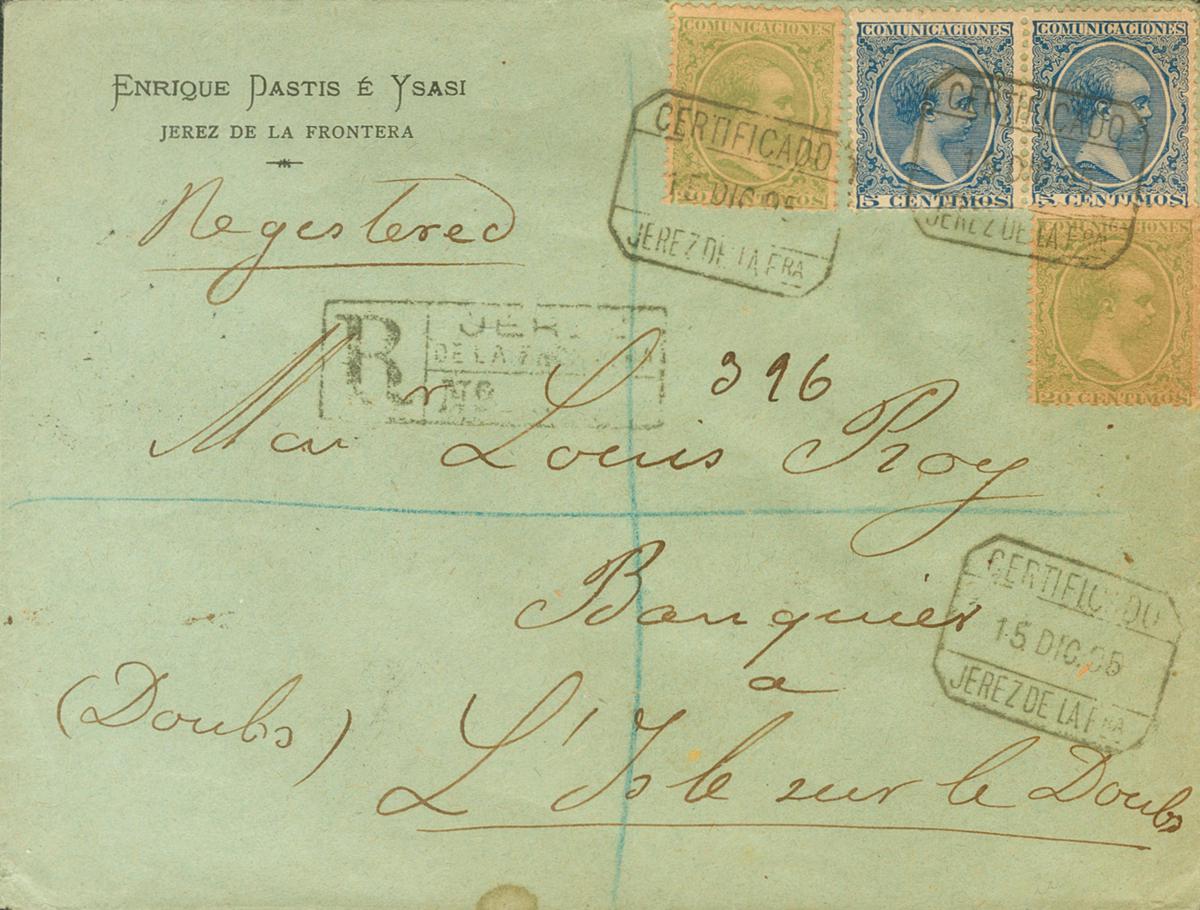 COMUNICACIONES
COMUNICACIONES
COMUNICACIONES
ENRIQUE PASTIS É YSASI
JEREZ DE LA FRONTERA
CERTIFICADO
15 DIC 95
JEREZ DE LA FRA
CERTIFICADO
JEREZ DE LA FRA
5 CENTIMOS
5 CENTIMOS
Registered
COMUNICACIONES
20 CENTIMOS
R
DE LA
No
396
Mon Louis Roy
Banquier
à
(Doubs)
L'Isle sur le Doubs
CERTIFICADO
15 DIC. 95
JEREZ DE LA FRA